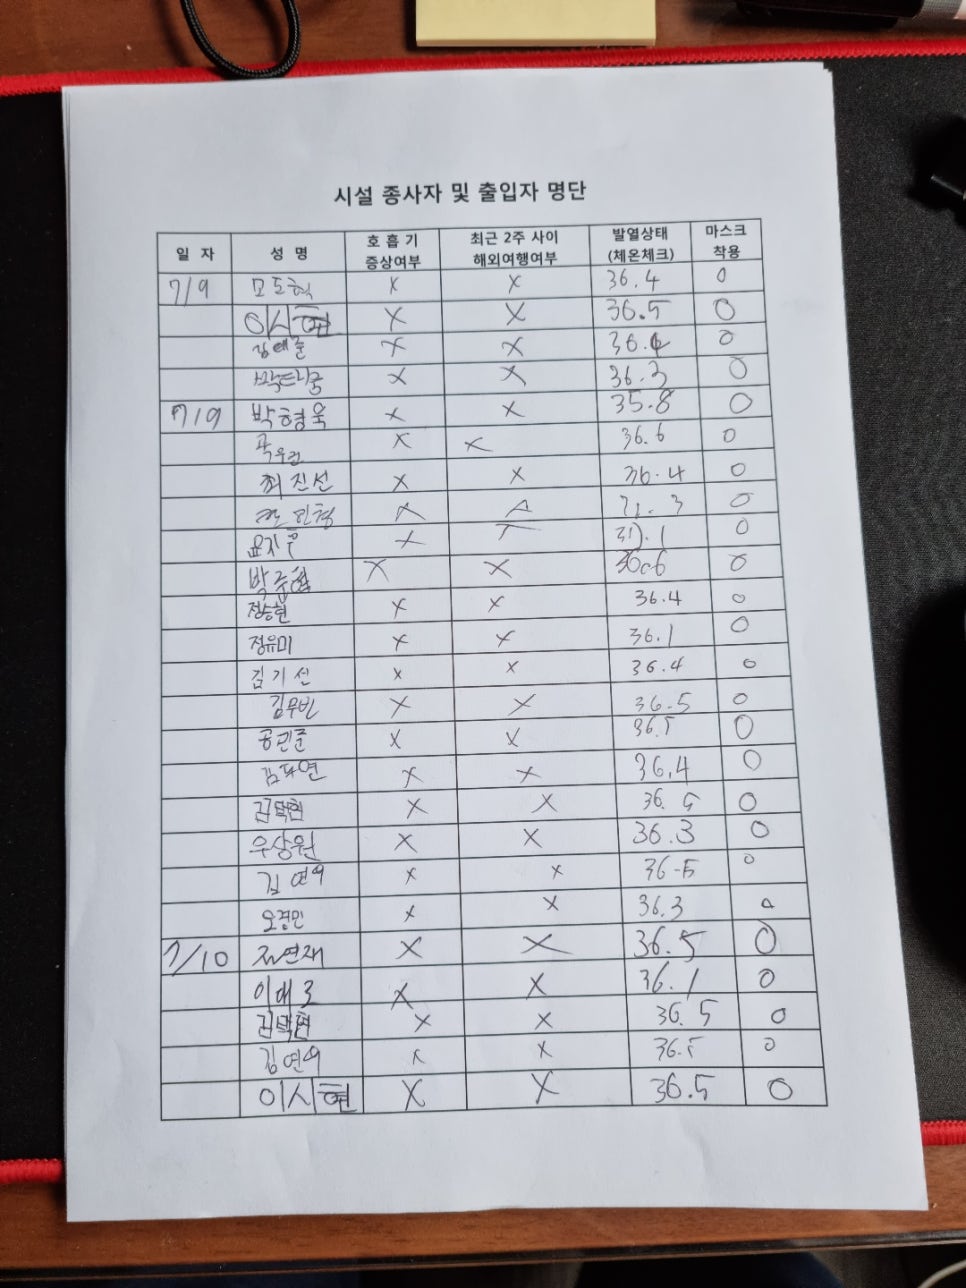 시설 종사자 및 출입자 명단
일 자 성 명 호 흡 기 증상여부 최근 2주 사이 해외여행여부 발열상태 (체온체크) 마스크 착용
7/9 모도혁 X X 36.4 O
이시현 X X 36.5 O
X X 36.4 O
X X 36.3 O
7/9 박형욱 X X 35.8 O
X X 36.6 O
최진선 X X 36.4 O
X O
윤지후 X O
X X 36.6 O
정승현 X X 36.4 O
정유미 X X 36.1 O
김기선 X X 36.4 O
김우빈 X X 36.5 O
공민준 X X 36.5 O
X X 36.4 O
김박현 X X 36.5 O
우상원 X X 36.3 O
김연우 X X 36.5 O
오경민 X X 36.3 O
7/10 X X 36.5 O
X X 36.1 O
김박현 X X 36.5 O
김연우 X X 36.5 O
이시현 X X 36.5 O